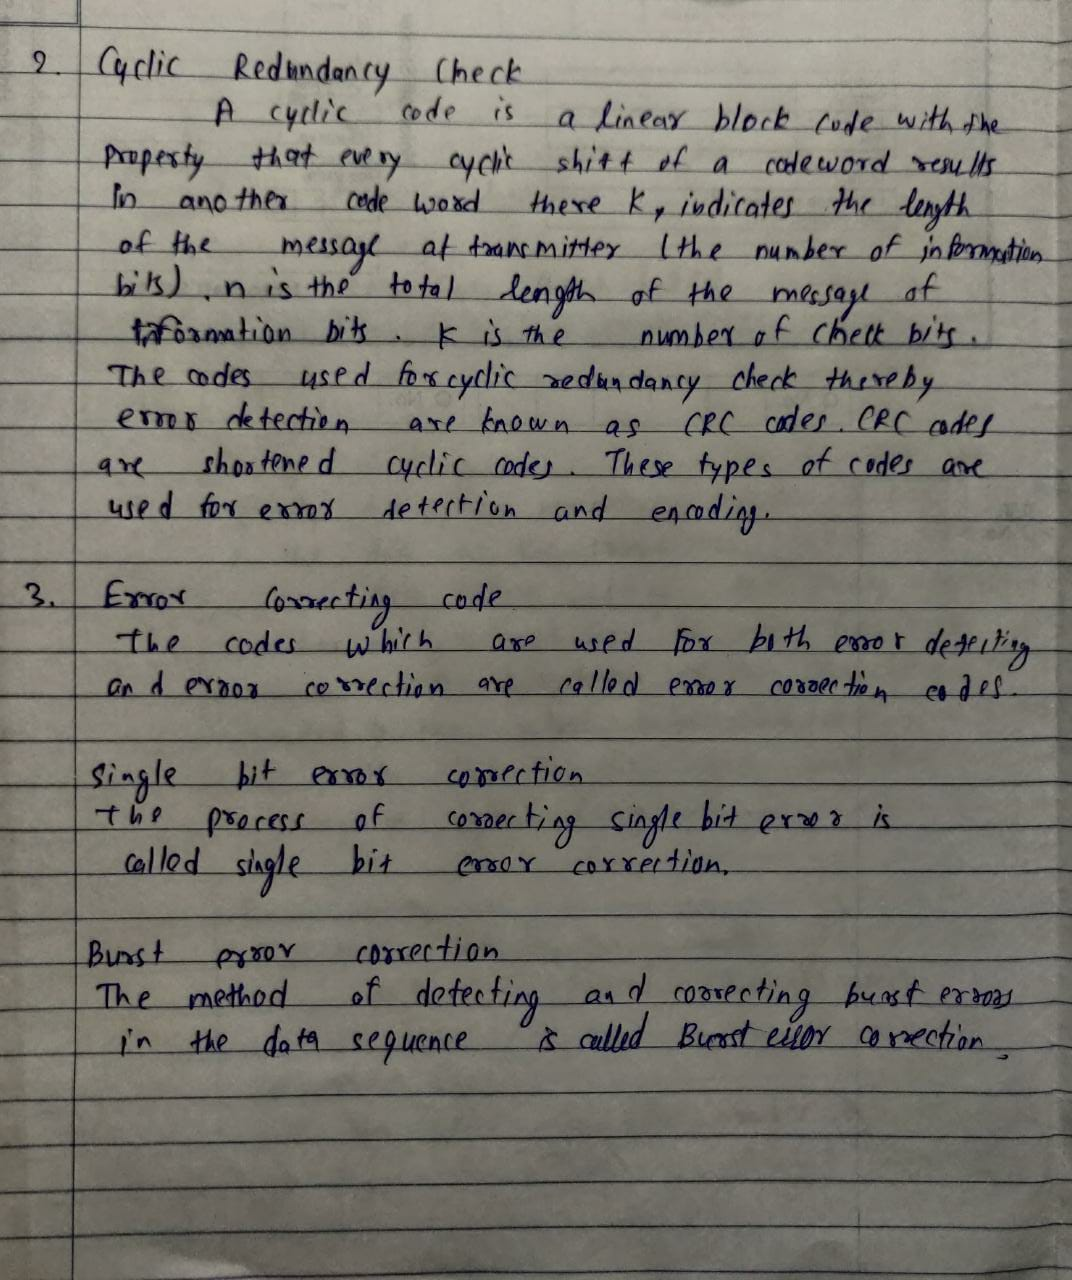 2. Cyclic Redundancy Check
A cyclic code is a linear block code with the
property that every cyclic shift of a codeword results
in another code word there K, indicates the length
of the message at transmitter (the number of information
bits). n is the total length of the message of
information bits. K is the number of check bits.
The codes used for cyclic redundancy check thereby
error detection are known as CRC codes. CRC codes
are shortened cyclic codes. These types of codes are
used for error detection and encoding.
3. Error Correcting code
the codes which are used for both error detecting
and error correction are called error correction codes.
Single bit error correction
the process of correcting single bit error is
called single bit error correction.
Burst error correction
The method of detecting and correcting burst errors
in the data sequence is called Burst error correction.